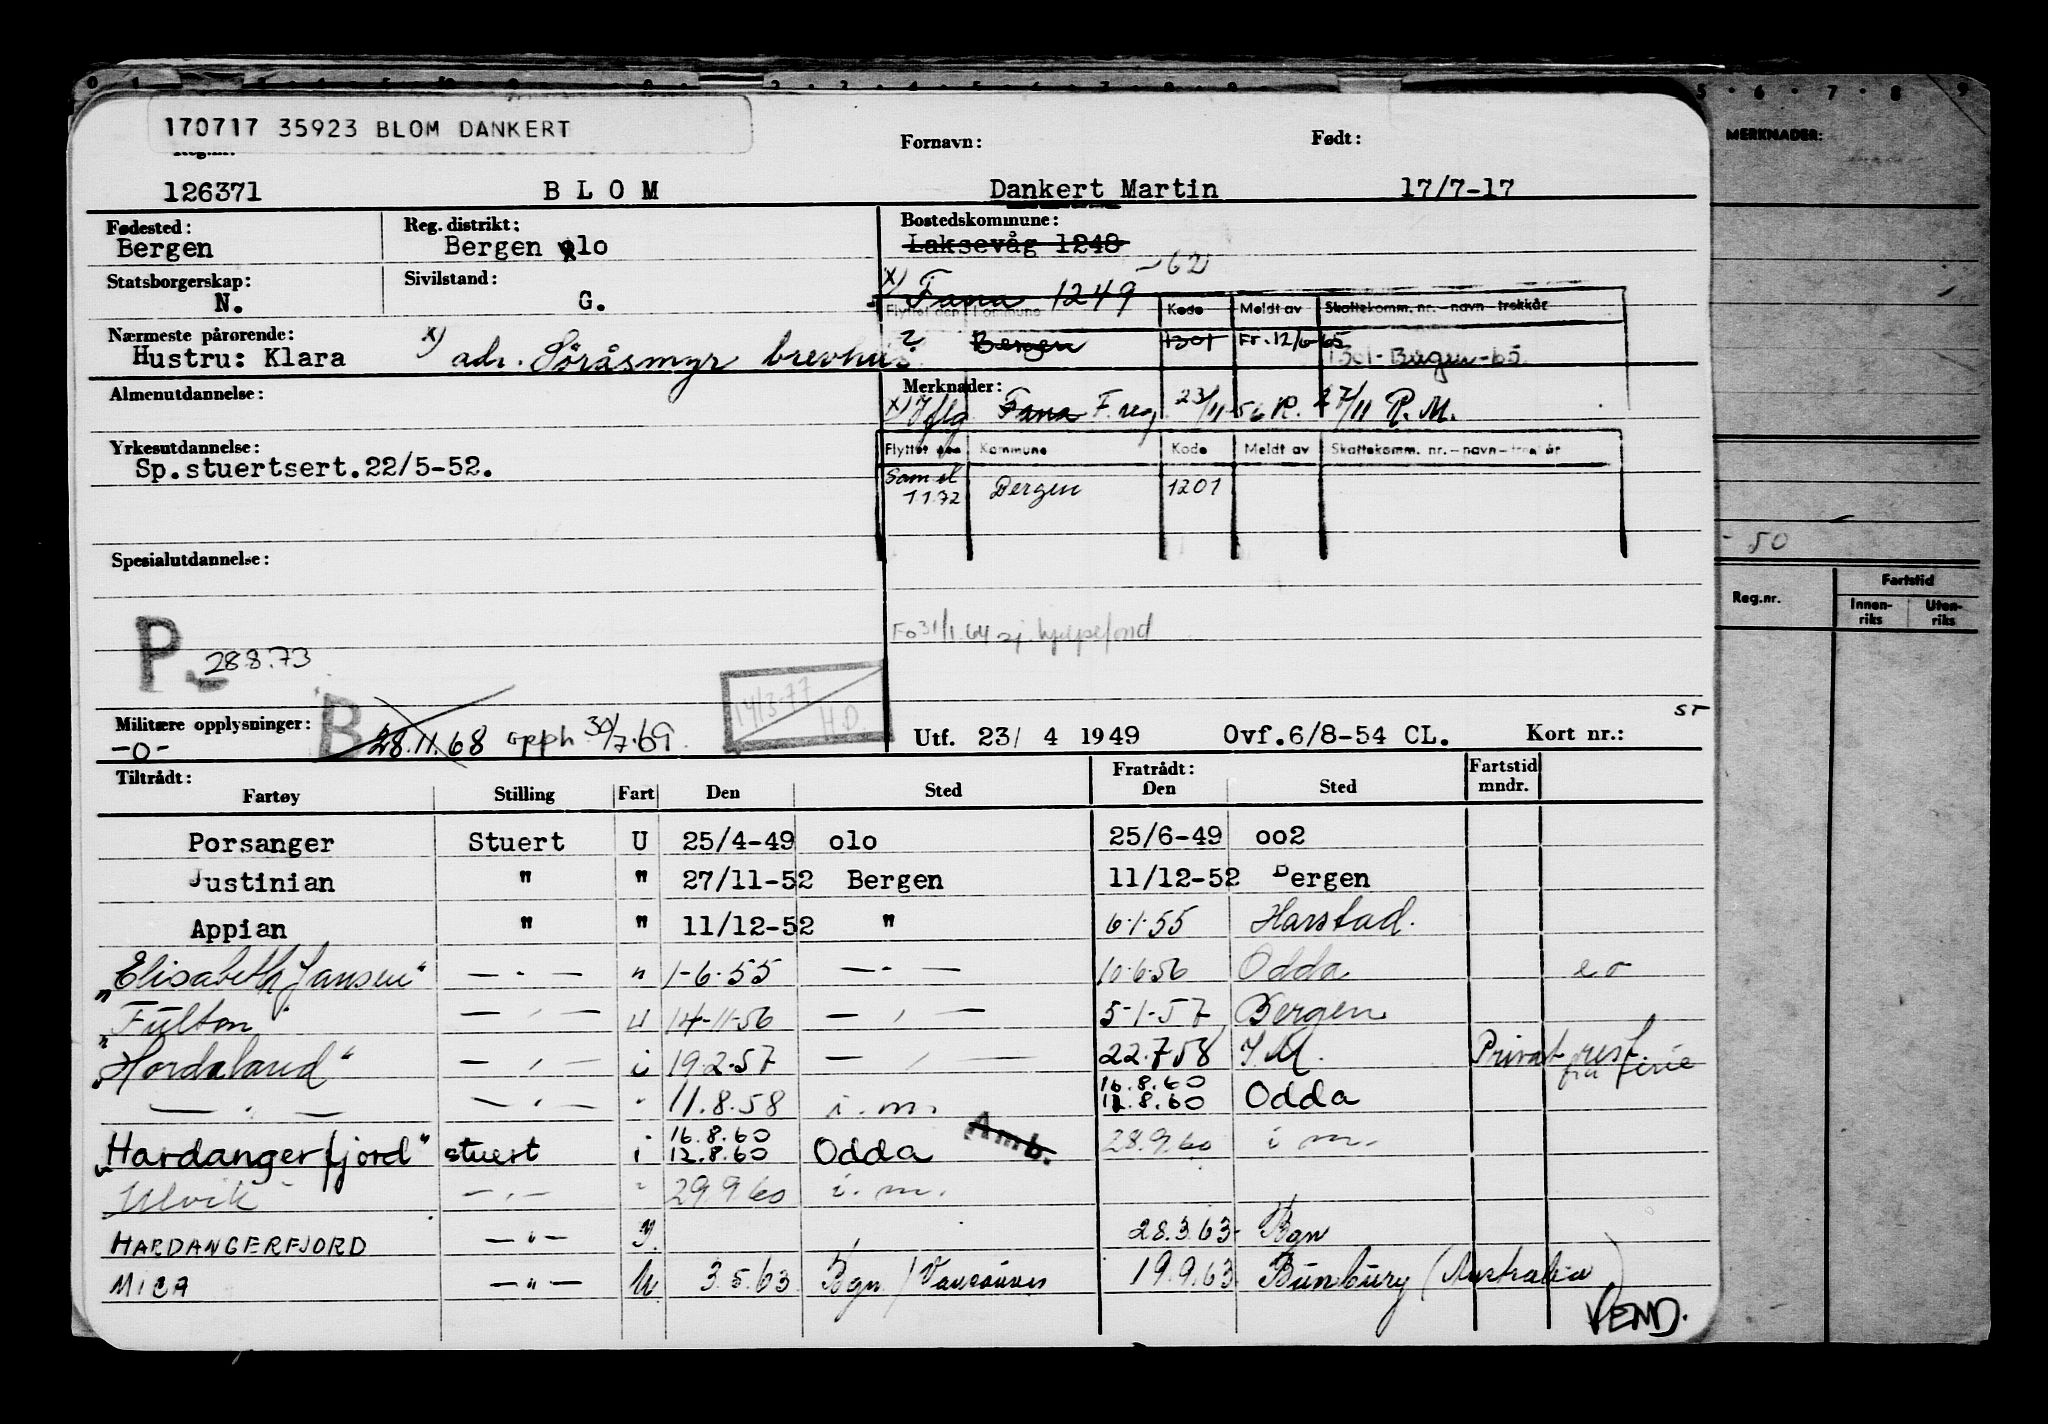 170717 35923 BLOM DANKERT
Fornavn: Født:
126371 B L O M Dankert Martin 17/7-17
Fødested: Reg. distrikt: Bostedskommune:
Bergen Bergen olo Laksevåg 1248
Statsborgerskap: Sivilstand: x) Fana 1249 -62
N. G.
Flyttet den Kommune Kode Meldt av Skattekomm. nr.-navn-trekkår
Nærmeste pårørende: ? Bergen 1301 Fr. 12/6-65 1301-Bergen-65.
Hustru: Klara x) adr. Söråsmyr brevhus
Almenutdannelse: Merknader:
x) Iflg. Fana F. reg 23/11-56 R. 27/11 R.M.
Yrkesutdannelse: Flyttet den Kommune Kode Meldt av Skattekomm. nr.-navn-trekk år
Sp.stuertsert.22/5-52.
1172 Bergen 1201
Spesialutdannelse:
Fo 31/1.64 sj. hjelpefond
P. 28.8.73
14/3-77
H.D.
ST
Militære opplysninger: B 28.11.68 opph 30/7.69.
-o- Utf. 23/ 4 1949 Ovf.6/8-54 CL. Kort nr.:
Tiltrådt: Fratrådt: Fartstid
Fartøy Stilling Fart Den Sted Den Sted mndr.
Porsanger Stuert U 25/4-49 olo 25/6-49 oo2
Justinian " " 27/11-52 Bergen 11/12-52 Bergen
Appian " " 11/12-52 " 6.1.55 Harstad.
"Elisabeth Jansen" — " — " 1-6.55 — " — 10.6.56 Odda
"Fulton" — " — u 14-11-56 — " — 5-1-57 Bergen
"Hordaland" — " — i 19.2.57 — " — 22.7.58 I.M. Privat rest. fra ferie
— " — — " — " 11.8.58 i. m. 16.8.60 12.8.60 Odda
"Hardangerfjord" stuert i 16.8.60 12.8.60 Odda Amb. 28.9.60 i m.
Ulvik — " — " 29.9.60 i. m.
HARDANGERFJORD — " — I. 28.3.63. Bgn
MICA — " — U. 3.5.63 Bgn / Vancouver 19.9.63. Bunbury (Australia)
VEND.
MERKNADER:
- 50
Reg.nr. Fartstid
Innen-riks Uten-riks